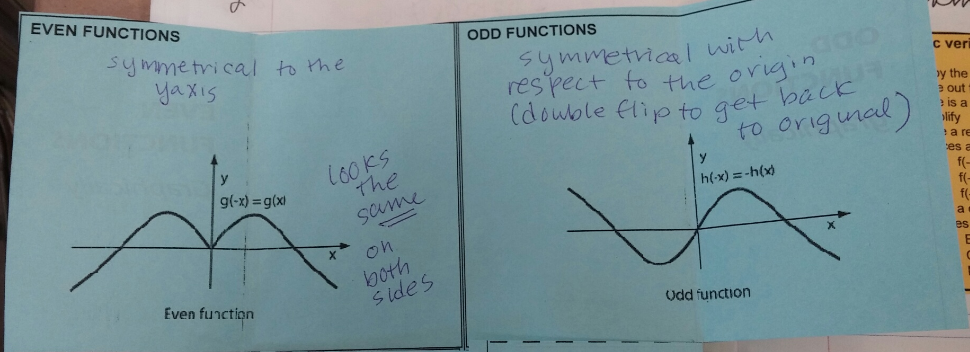 EVEN FUNCTIONS
symmetrical to the
yaxis
y
g(-x) = g(x)
x
looks
the
same
on
both
sides
Even function
ODD FUNCTIONS
symmetrical with
respect to the origin
(double flip to get back
to original)
y
h(-x) = -h(x)
x
Odd function
c veri
by the
e out
e is a
plify
a re
es a
f(-
f(-
f(
a
es